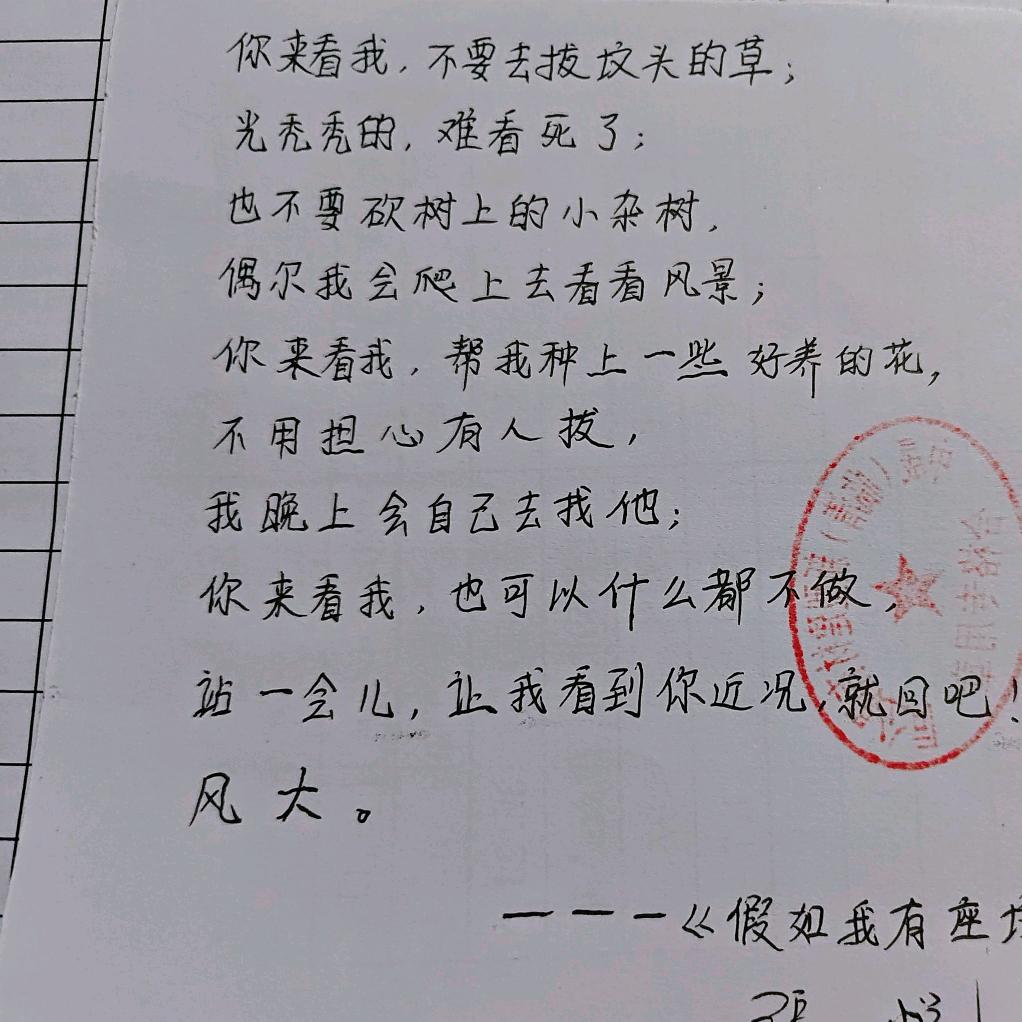 你来看我，不要去拔坟头的草；
光秃秃的，难看死了；
也不要砍树上的小杂树，
偶尔我会爬上去看看风景；
你来看我，帮我种上一些好养的花，
不用担心有人拔，
我晚上会自己去找他；
你来看我，也可以什么都不做，
站一会儿，让我看到你近况，就回吧！
风大。
———《假如我有座